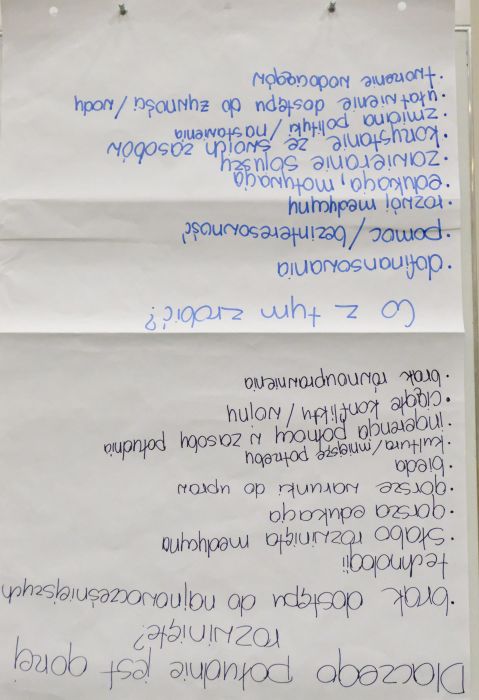 Dlaczego południe jest gorzej
rozwinięte?
• brak dostępu do najnowocześniejszych
technologii
• słabo rozwinięta medycyna
• gorsza edukacja
• gorsze warunki do upraw
• bieda
• kultura/mniejsze potrzeby
• ingerencja północy w zasoby południa
• ciągłe konflikty / wojny
• brak równouprawnienia
Co z tym zrobić?
• dofinansowania
• pomoc / bezinteresowność
• rozwój medycyny
• edukacja, motywacja
• zawieranie sojuszy
• korzystanie ze swoich zasobów
• zmiana polityki / nastawienia
• ułatwienie dostępu do żywności / wody
• tworzenie wodociągów